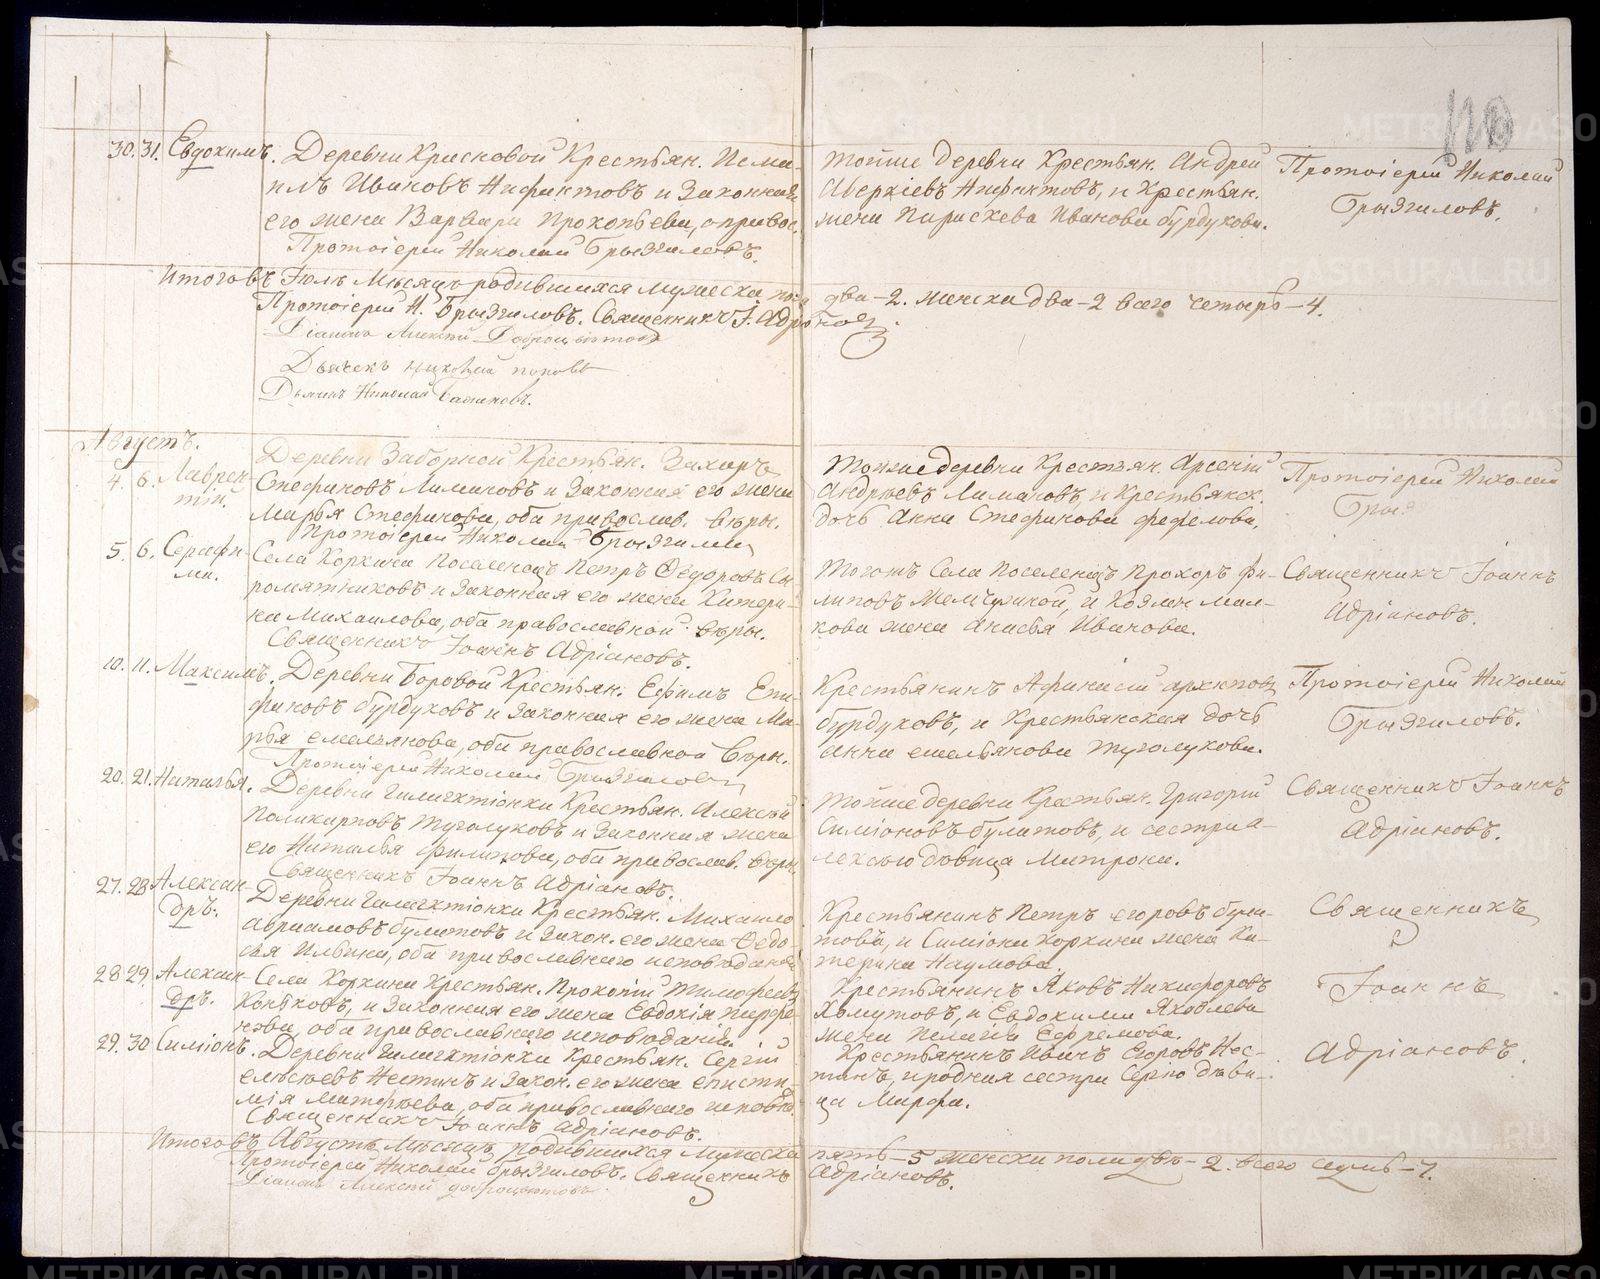 110
30. 31. Евдокимъ. Деревни Красновой Крестьян. Исма-
илъ Ивановъ Нифантовъ и Законная
его жена Варвара Прокопьева, о правос.
Протоіерей Николай Брызгаловъ.
тойже деревни Крестьян. Андрей
Аверкіевъ Нифантовъ, и Крестьян.
жена Параскева Иванова Бурдукова.
Протоіерей Николай
Брызгаловъ.
Итого въ Іюль Мѣсяцъ родившихся мужеска пола два - 2. женска два - 2 всего четыре - 4.
Протоіерей Н. Брызгаловъ. Священникъ І. Адріановъ.
Діаконъ Алексѣй Доброцвѣтовъ
Дьячекъ Николай Поповъ
Николай
Августъ.
4. 6. Лаврен-
тій.
Деревни Заборной Крестьян. Захаръ
Стефановъ Лимановъ и Законная его жена
Марья Стефанова, оба православ. вѣры.
Протоіерей Николай Брызгаловъ
Тойже деревни Крестьян. Арсеній
Андреевъ Лимановъ, и Крестьянск.
дочь Анна Стефанова Фефелова,
Протоіерей Николай
Брыз
5. 6. Серафи-
ма.
Села Коркина Поселенецъ Петръ Ѳедоровъ Сы-
ромятниковъ и Законная его жена Катери-
на Михаилова, оба православной вѣры.
Священникъ Іоаннъ Адріановъ.
Тогожъ Села Поселенецъ Прохоръ Фи-
липовъ Жемчужной, и Козмы Мал-
кова жена Анисья Иванова.
Священникъ Іоаннъ
Адріановъ.
10. 11. Максимъ. Деревни Боровой Крестьян. Ефимъ Епи-
фановъ Бурдуковъ и Законная его жена Ма-
рья Емельянова, оба православной Вѣры.
Протоіерей Николай Брызгаловъ
Крестьянинъ Афанасій Архиповъ
Бурдуковъ, и Крестьянская дочь
Анна Емельянова Туголукова.
Протоіерей Николай
Брызгаловъ.
20. 21. Наталья. Деревни Гилигхтіонки Крестьян. Алексѣй
Поликарповъ Туголуковъ и Законная жена
его Наталья Филипова, оба православ. вѣры.
Священникъ Іоаннъ Адріановъ.
тойже деревни Крестьян. Григорій
Симіоновъ Булатовъ, и сестра А-
лексѣю дѣвица Матрона.
Священникъ Іоаннъ
Адріановъ.
27. 28 Алексан-
дръ.
Деревни Гилигхтіонки Крестьян. Михаило
Авраамовъ Булатовъ и Закон. его жена Ѳедо-
сья Ильина, оба православнаго исповѣданія
Крестьянинъ Петръ Егоровъ Була-
товъ, и Симіона Коркина жена Ка-
терина Наумова.
Священникъ
28 29. Алексан-
дръ.
Села Коркина Крестьян. Прокопій Тимофеевъ
Коньковъ, и Законная его жена Евдокія Парфе-
нова, оба православнаго исповѣданія.
Крестьянинъ Яковъ Никифоровъ
Хомутовъ, и Евдокима Яковлева
жена Пелагія Ефремова.
Іоаннъ
29. 30 Симіонъ. Деревни Гилигхтіонки Крестьян. Сергій
Елисѣевъ Нестинъ и Закон. его жена Еписти-
мія Матфѣева, оба православнаго исповѣд.
Священникъ Іоаннъ Адріановъ.
Крестьянинъ Иванъ Егоровъ Нес-
тинъ, и родная сестра Сергію дѣви-
ца Марфа.
Адріановъ.
Итого въ Августъ Мѣсяцъ родившихся мужеска пять - 5 женска пола двѣ - 2. всего семь - 7.
Протоіерей Николай Брызгаловъ. Священникъ Адріановъ.
Діаконъ Алексѣй Доброцвѣтовъ.
METRIKI.GASO-URAL.RU